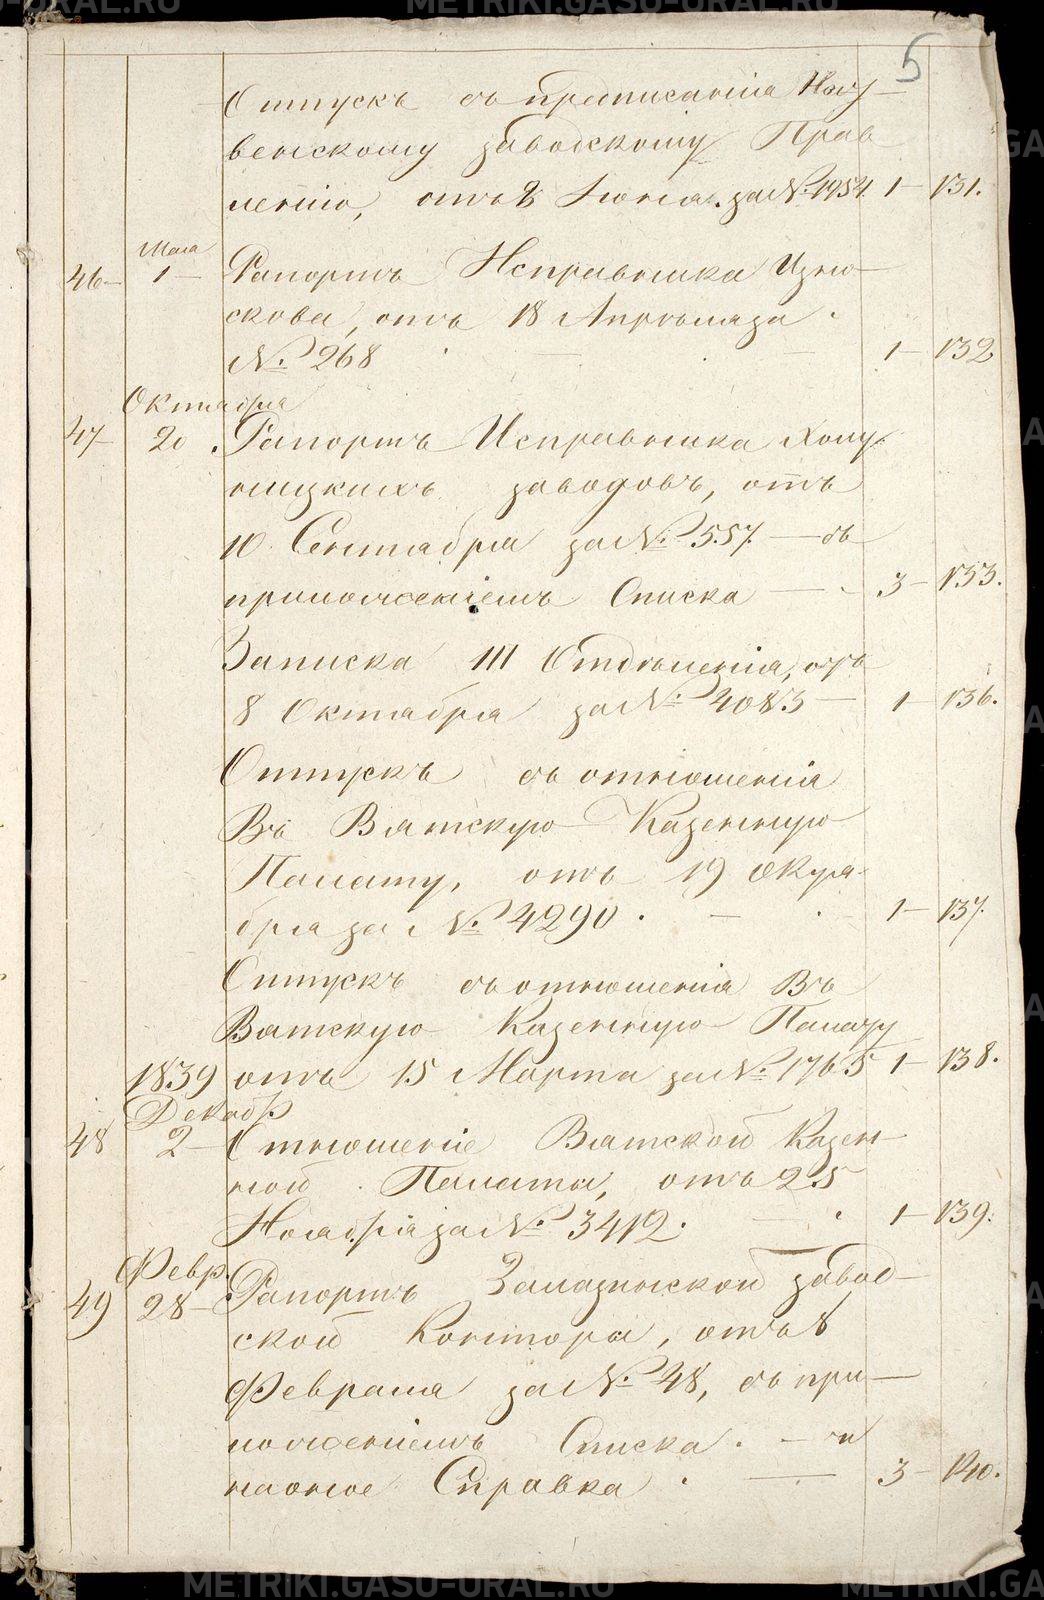 5
Отпускъ съ предписанія Ноу
венскому заводскому Прав
ленію, отъ 8 Іюня за № 1954. 1 — 131.
46 — Мая 1 — Рапортъ Исправника Изно
скова, отъ 18 Апрѣля за
№ 268 1 — 132
Октября
47 — 20. Рапортъ Исправника Холу
ницкихъ заводовъ, отъ
10 Сентября за № 557. — съ
приложеніемъ Списка — 3 — 133.
Записка III Отдѣленія, отъ
8 Октября за № 4083 — 1 — 136.
Отпускъ съ отношенія
Въ Вятскую Казенную
Палату, отъ 19 Октя
бря за № 4290. — 1 — 137.
Отпускъ съ отношенія Въ
Вятскую Казенную Палату
1839 отъ 15 Марта за № 1765 1 — 138.
Декабр.
48 2 — Отношеніе Вятской Казен
ной Палаты, отъ 25
Ноября за № 3412. — 1 — 139.
Февр.
49 28 — Рапортъ Залазнинской завод
ской Конторы, отъ 8
Февраля за № 48, съ при
ложеніемъ Списка. — и
на оное Справка. — 3 — 140.
METRIKI.GASU-URAL.RU